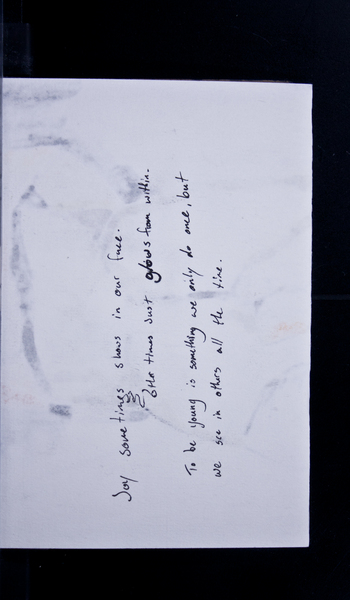 Joy sometimes shows in our face.
Other times Just glows from within.
To be young is something we only do once, but
we see in others all the time.